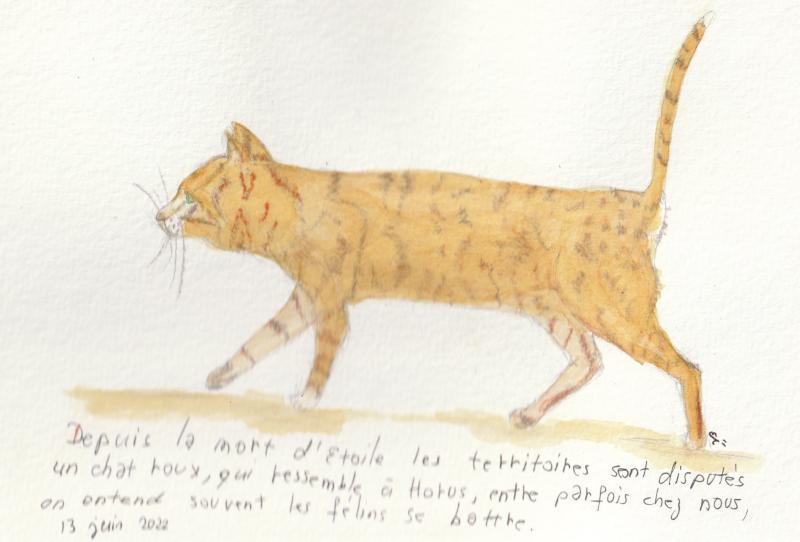 Depuis la mort d'Etoile les territoires sont disputés
un chat roux, qui ressemble à Horus, entre parfois chez nous,
on entend souvent les félins se battre.
13 juin 2022